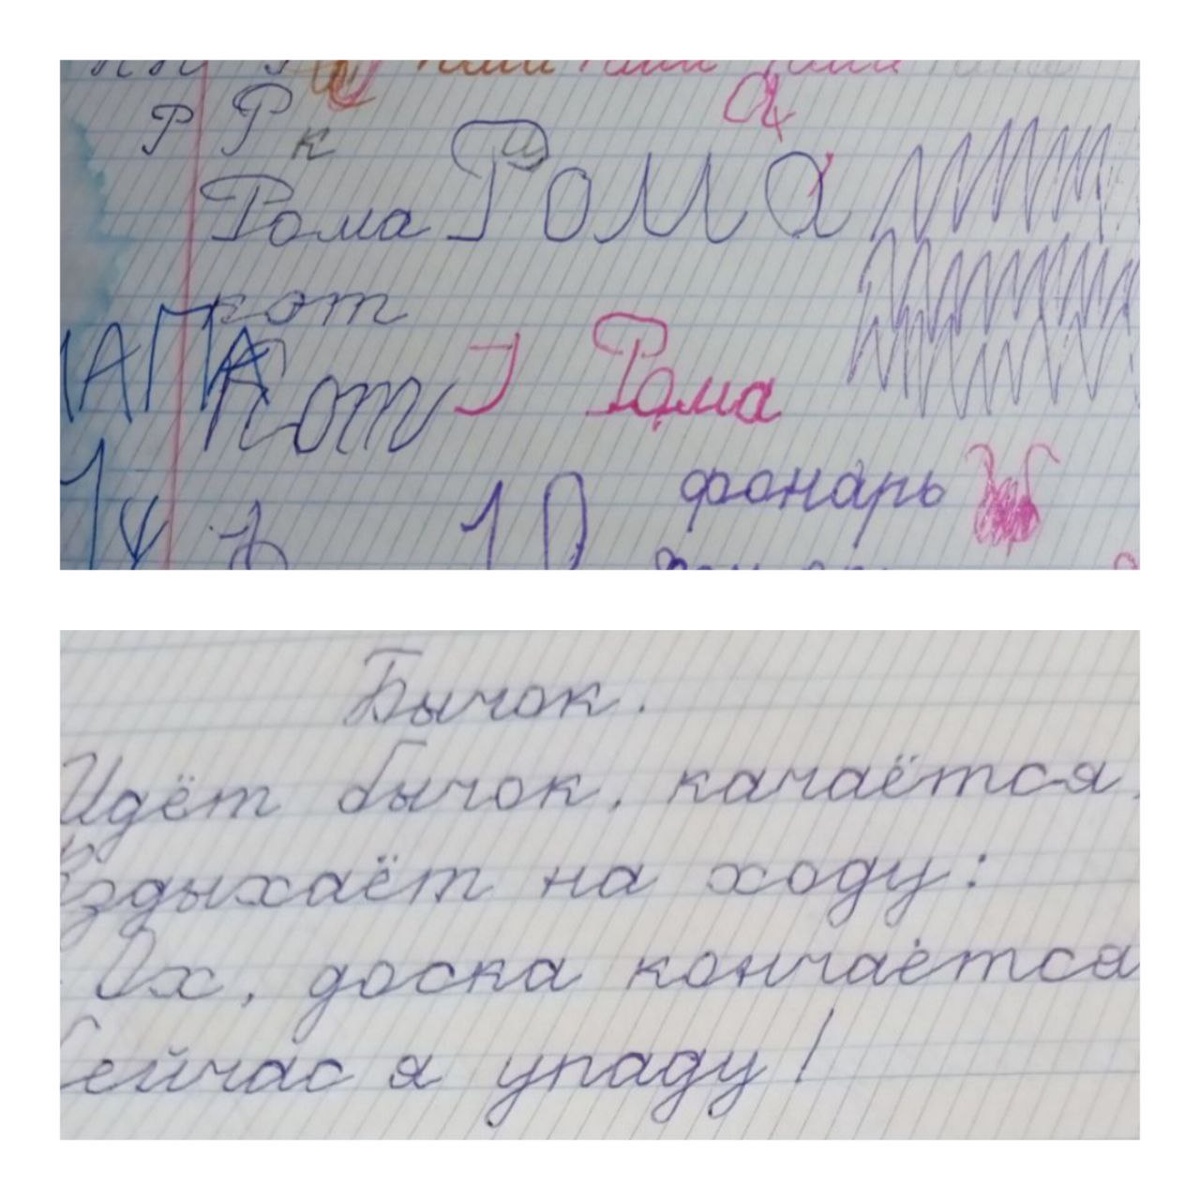 Р Р к
а
Рома Рома
кот
ПАПА Кот Рома
фонарь
10
Бычок.
Идёт бычок, качаётся,
Вздыхаёт на ходу:
Ох, доска кончаётся
Сейчас я упаду!